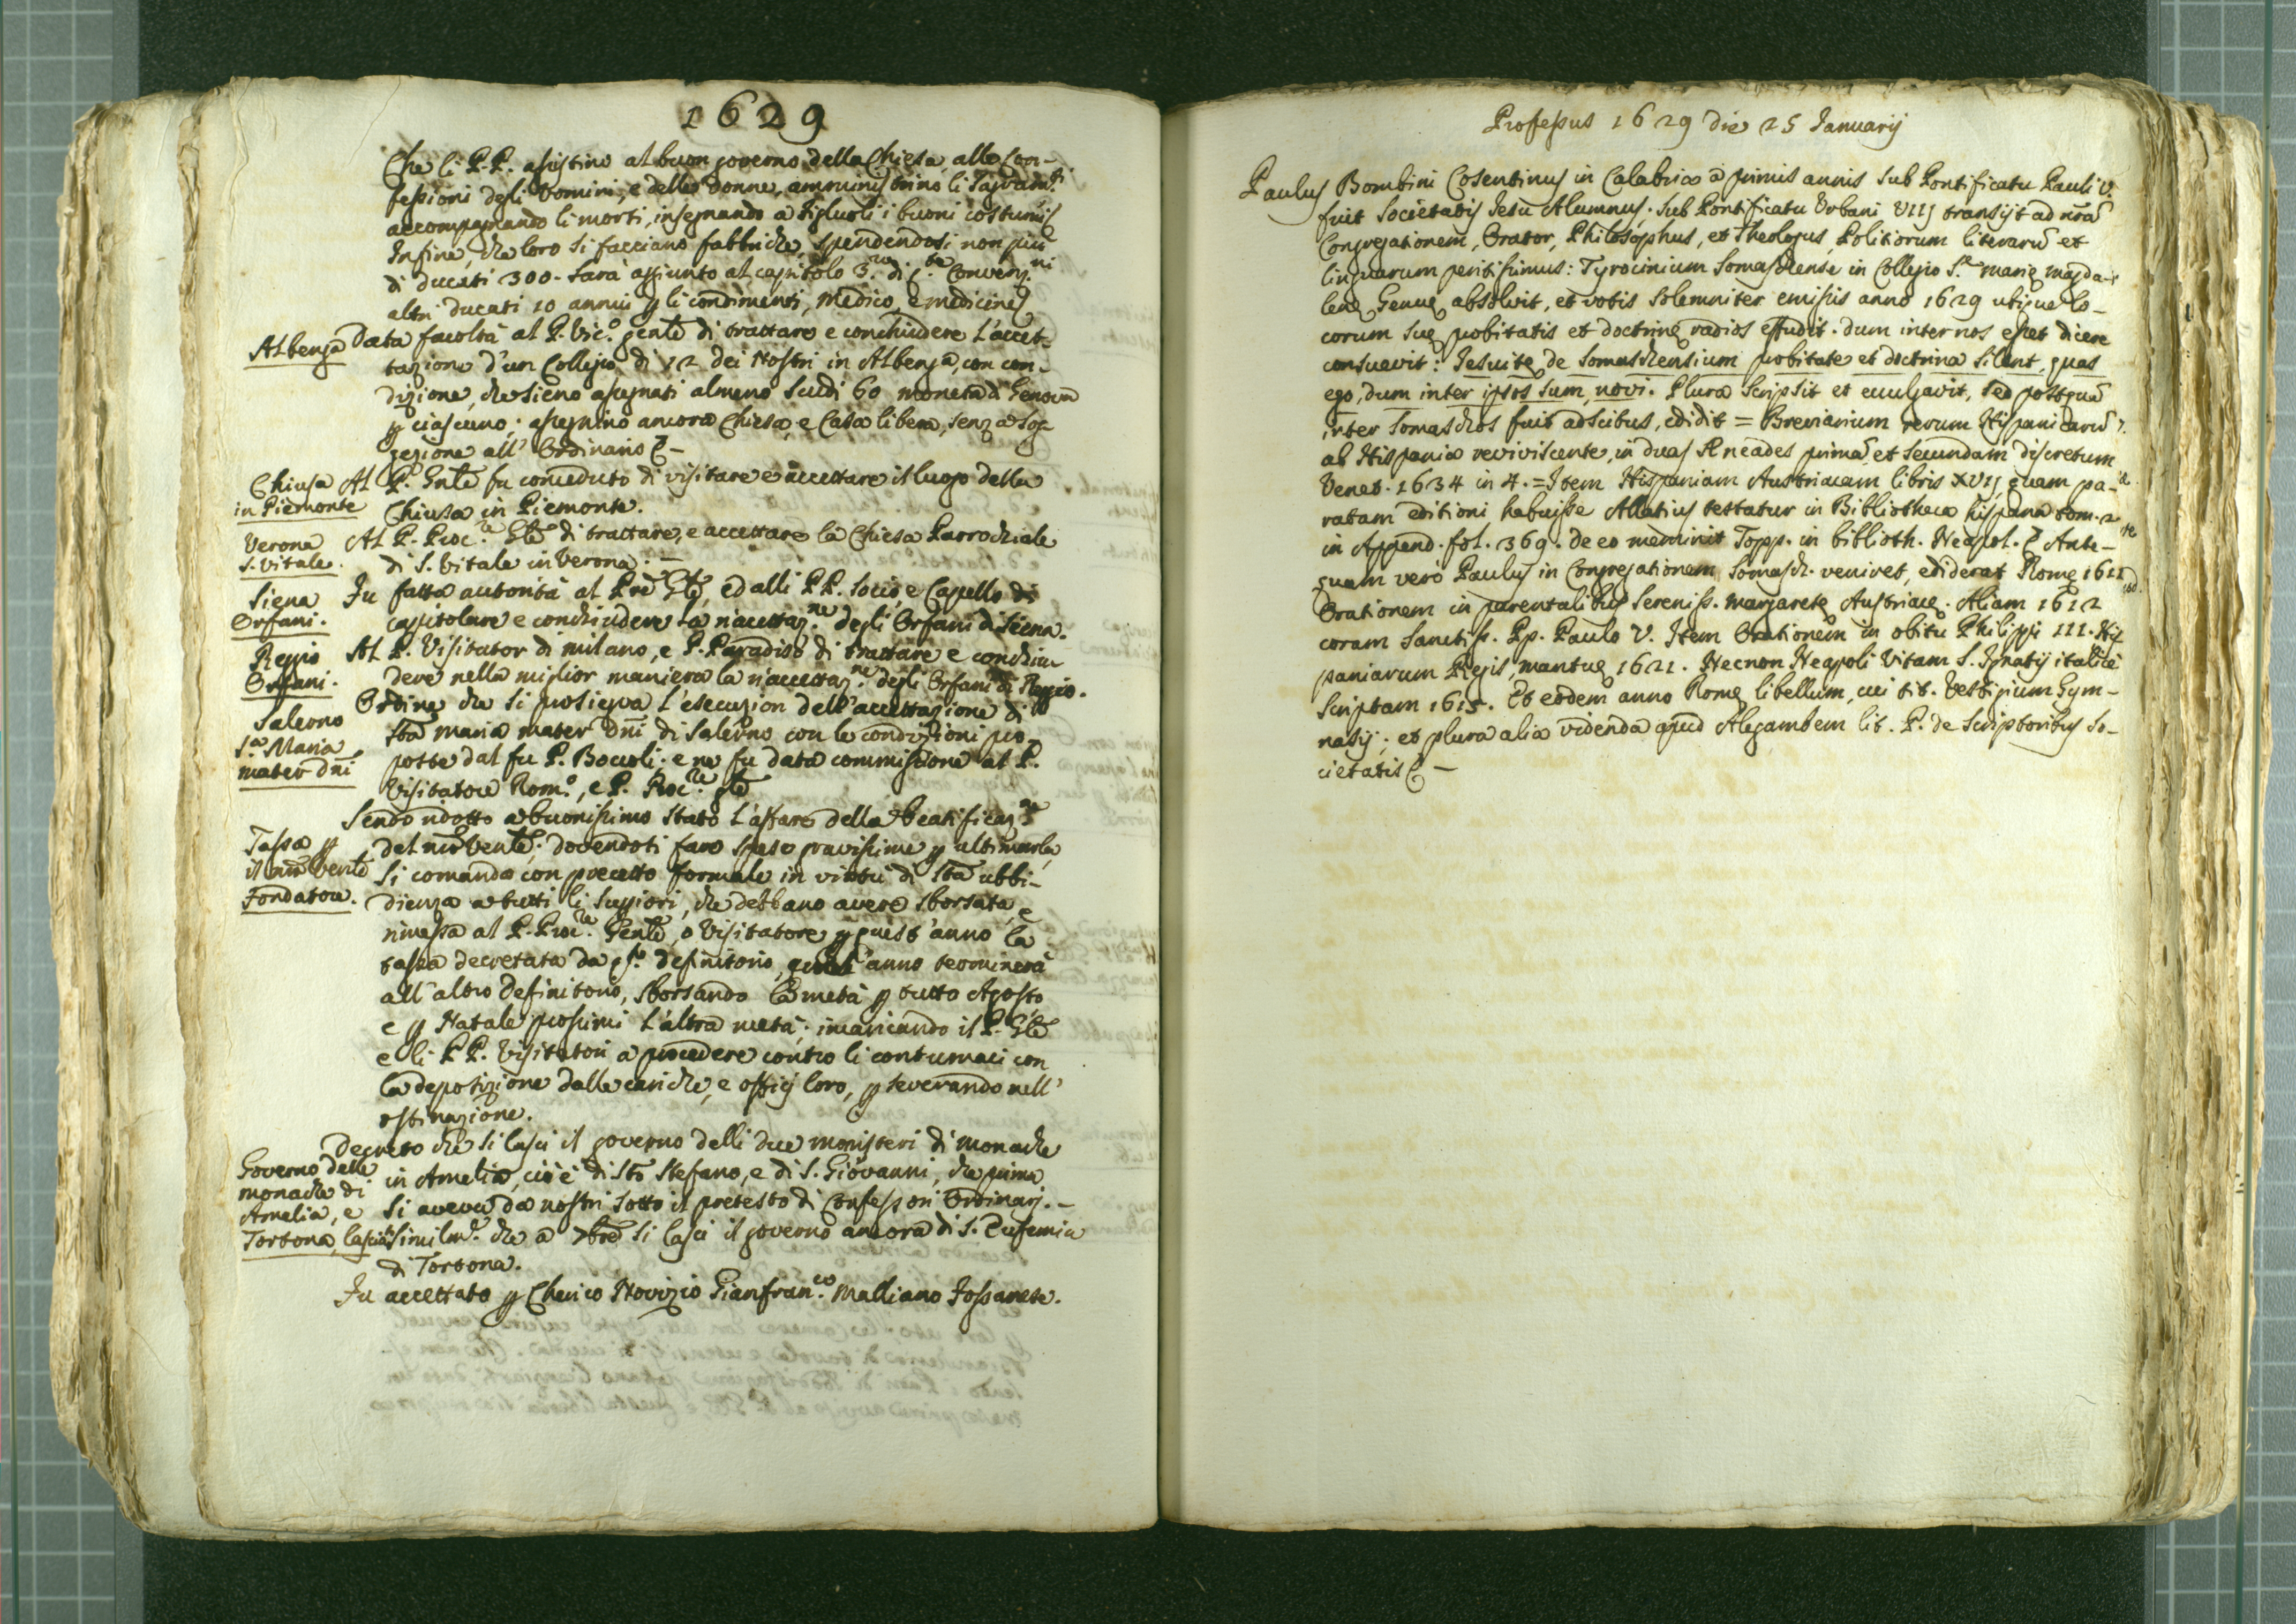 1629
Che li P.P. assistino al buon governo della Chiesa, alle Con-
fessioni degli Uomini, e delle donne, amministrino li Sagram.ti
accompagnando li morti, insegnando a figluoli i buoni costumi &
Infine, che loro si facciano fabbriche, spendendosi non più
di ducati 300. Sarà aggiunto al capitolo 3.
altri ducati 10 annui p li condimenti, medico, e medicine &
Albenga
Data facoltà al P. Vic.o gentē di trattare e conchiudere l'accet-
tazione d'un Collegio di 12 dei Nostri in Albenga, con con-
dizione, che sieno assegnati almeno Scudi 60 moneta di Genova
p ciascuno; assegnino ancora Chiesa, e Casa libera, senza sog-
gezione all' Ordinario & –
Chiusa
in Piemonte
Al P. Gntē fu conceduto di visitare e accettare il luogo della
Chiusa in Piemonte.
Verona
S. Vitale.
Al P. Proc.re Gtē di trattare, e accettare la Chiesa Parrochiale
di S. Vitale in Verona. –
Siena
Orfani.
Fu fatta autorità al Prē Gtē, ed alli P.P. Socio, e Capello di
capitolare e conchiudere la riaccettaz.ne degli Orfani di Siena.
Reggio
Orfani.
Al P. Visitator di milano, e P. Paradiso di trattare e conchiu
dere nella miglior maniera la riaccettaz.ne degli Orfani di Reggio.
Salerno
S.a Maria
mater dnī
Ordine che si prosiegua l'esecuzion dell'accettazione di
Stā maria mater Dnī di Salerno con le condizioni pro-
poste dal fu P. Boccoli; e ne fu data commissione al P.
Visitatore Rom.o, e P. Proc.re gtē
Tassa p
il nrō Ventē
Fondatore.
Sendo ridotto a buonissimo stato l'affare della beatificaz.ne
del nrō Ventē; dovendoti fare spese gravissime p ultimarla,
si comanda con precetto formale in virtù di Stā ubbi-
dienza a tutti li Suppiori, che debbano avere sborsata, e
rimessa al P. Proc.re Gentē, o Visitatore p quest'anno la
tassa decretata da q.sto definitorio, quest'anno terminerà
all'altro definitorio, sborsando la metà p tutto Agosto
e p Natale prossimi l'altra metà; incaricando il P. Gtē
e li P.P. Visitatori a procedere contro li contumaci con
la deposizione dalle cariche, e officj loro, pseverando nell'
ostinazione.
Governo delle
monache di
Amelia, e
Tortona, lascia
Decreto che si lasci il governo delli due monisteri di monache
in Amelia, cioè di Stō Stefano, e di S. Giovanni, che prima
si aveva da nostri sotto il pretesto di Confessori Ordinarj. –
Similm.e che a 7brē si lasci il governo ancora di S. Eufemia
di Tortona.
Fu accettato p Cherico Novizio Gianfran.co Malliano Fossanese.
Professus 1629 die 25 Januarij
Paulus Bombini Cosentinus in Calabria a primis annis sub Pontificatu Pauli V.
fuit Societatis Jesu Alumnus. Sub Pontificatu Urbani VIIJ transijt ad nrā
Congregationem, Orator, Philosophus, et Theologus Politiorum literarū et
linguarum peritissimus: Tyrocinium Somaschense in Collegio S.e Marię Magda-
lenę Genuę absolvit, et votis solemniter emissis anno 1629 utique lo-
corum suę probitatis et doctrinę radios effudit. dum inter nos esset dicere
consuevit: Jesuitę de Somaschensium probitate et doctrina silent, quas
ego, dum inter ipsos sum, novi. Plura scripsit et evulgavit, sed postquā
inter Somaschos fuit adscitus, edidit = Breviarium rerum Hispanicarū
ab Hispania reviviscente, in duas Æneades primā et secundam discretum
Venet. 1634 in 4. = Item Hispaniam Austriacam libris XVIJ quam pa-
ratam editioni habuisse Allatius testatur in Bibliotheca hispana tom. 2
in Append. fol. 369. de eo meminit Topp. in biblioth. Neapol. & Ante-
quam vero Paulus in Congregationem Somasch. veniret, ediderat Romę 1611
Orationem in parentalibus Sereniss. Margaretę Austriacę. Aliam 1612
coram Sanctiss. Pp. Paulo V. Item Orationem in obitu Philippi III. His
paniarum Regis, mantuę 1621. Necnon Neapoli Vitam S. Ignatij italicè
scriptam 1615. Et eodem anno Romę libellum, cui tit. Vestigium Gym-
nasij; et plura alia videnda apud Alegambem lit. P. de Scriptoribus So-
cietatis & –